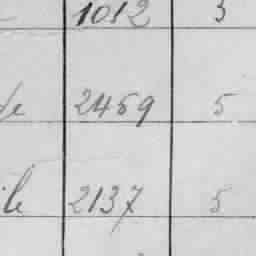 1012 3
de 2459 5
ile 2137 5